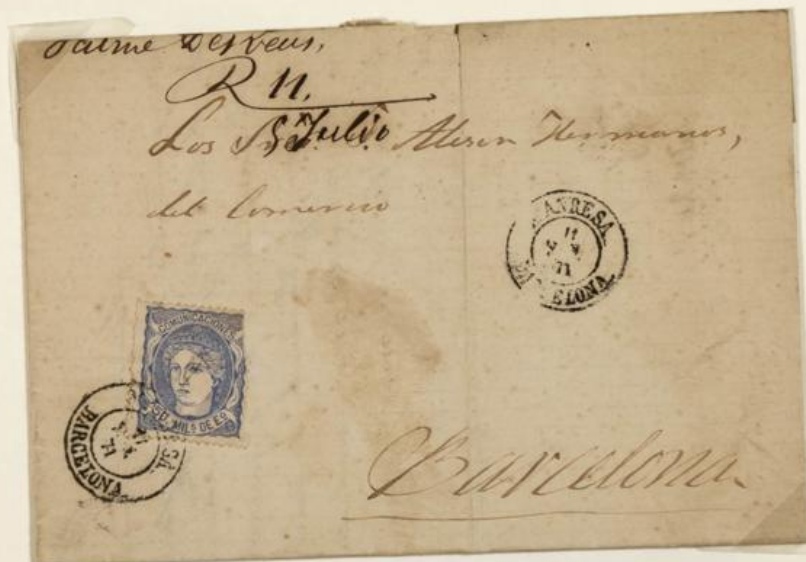 Jaime
R 11.
Julio
Los Sres. Hermanos,
del Comercio
MANRESA
11
71
BARCELONA
COMUNICACIONES
50 MILS DE Eo
BARCELONA
71
Barcelona